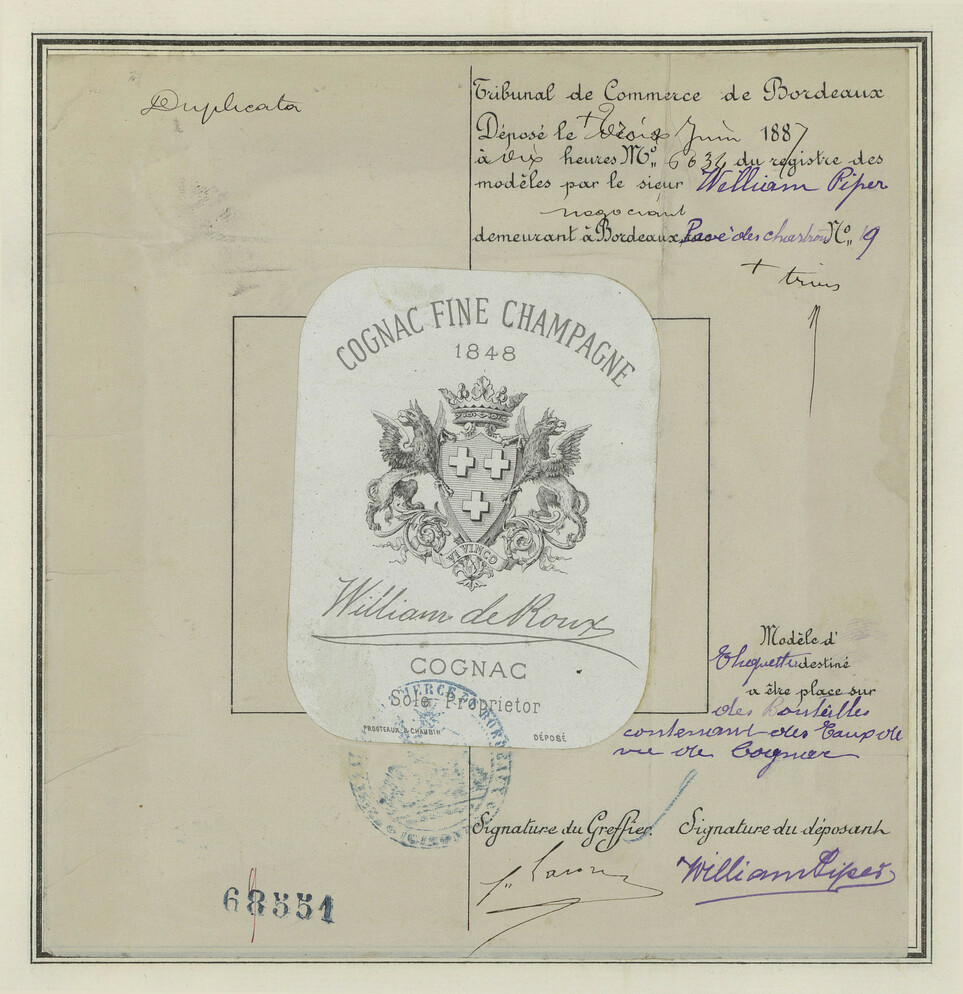 Duplicata
Tribunal de Commerce de Bordeaux
Déposé le + Trois Juin 1887
à dix heures Nº 6632 du registre des
modèles par le sieur William Piper
negociant
demeurant à Bordeaux, Pavé des chartrons Nº 19
+ trois
COGNAC FINE CHAMPAGNE
1848
VI VINCO
William de Roux
COGNAC
Sole Proprietor
PROSTEAUX & CHAUBIN
DÉPOSÉ
Modèle d'
Etiquette destiné
a être place sur
des Bouteilles
contenant des Eaux de
vie de Cognac
Signature du Greffier
Signature du déposant
William Piper
68551